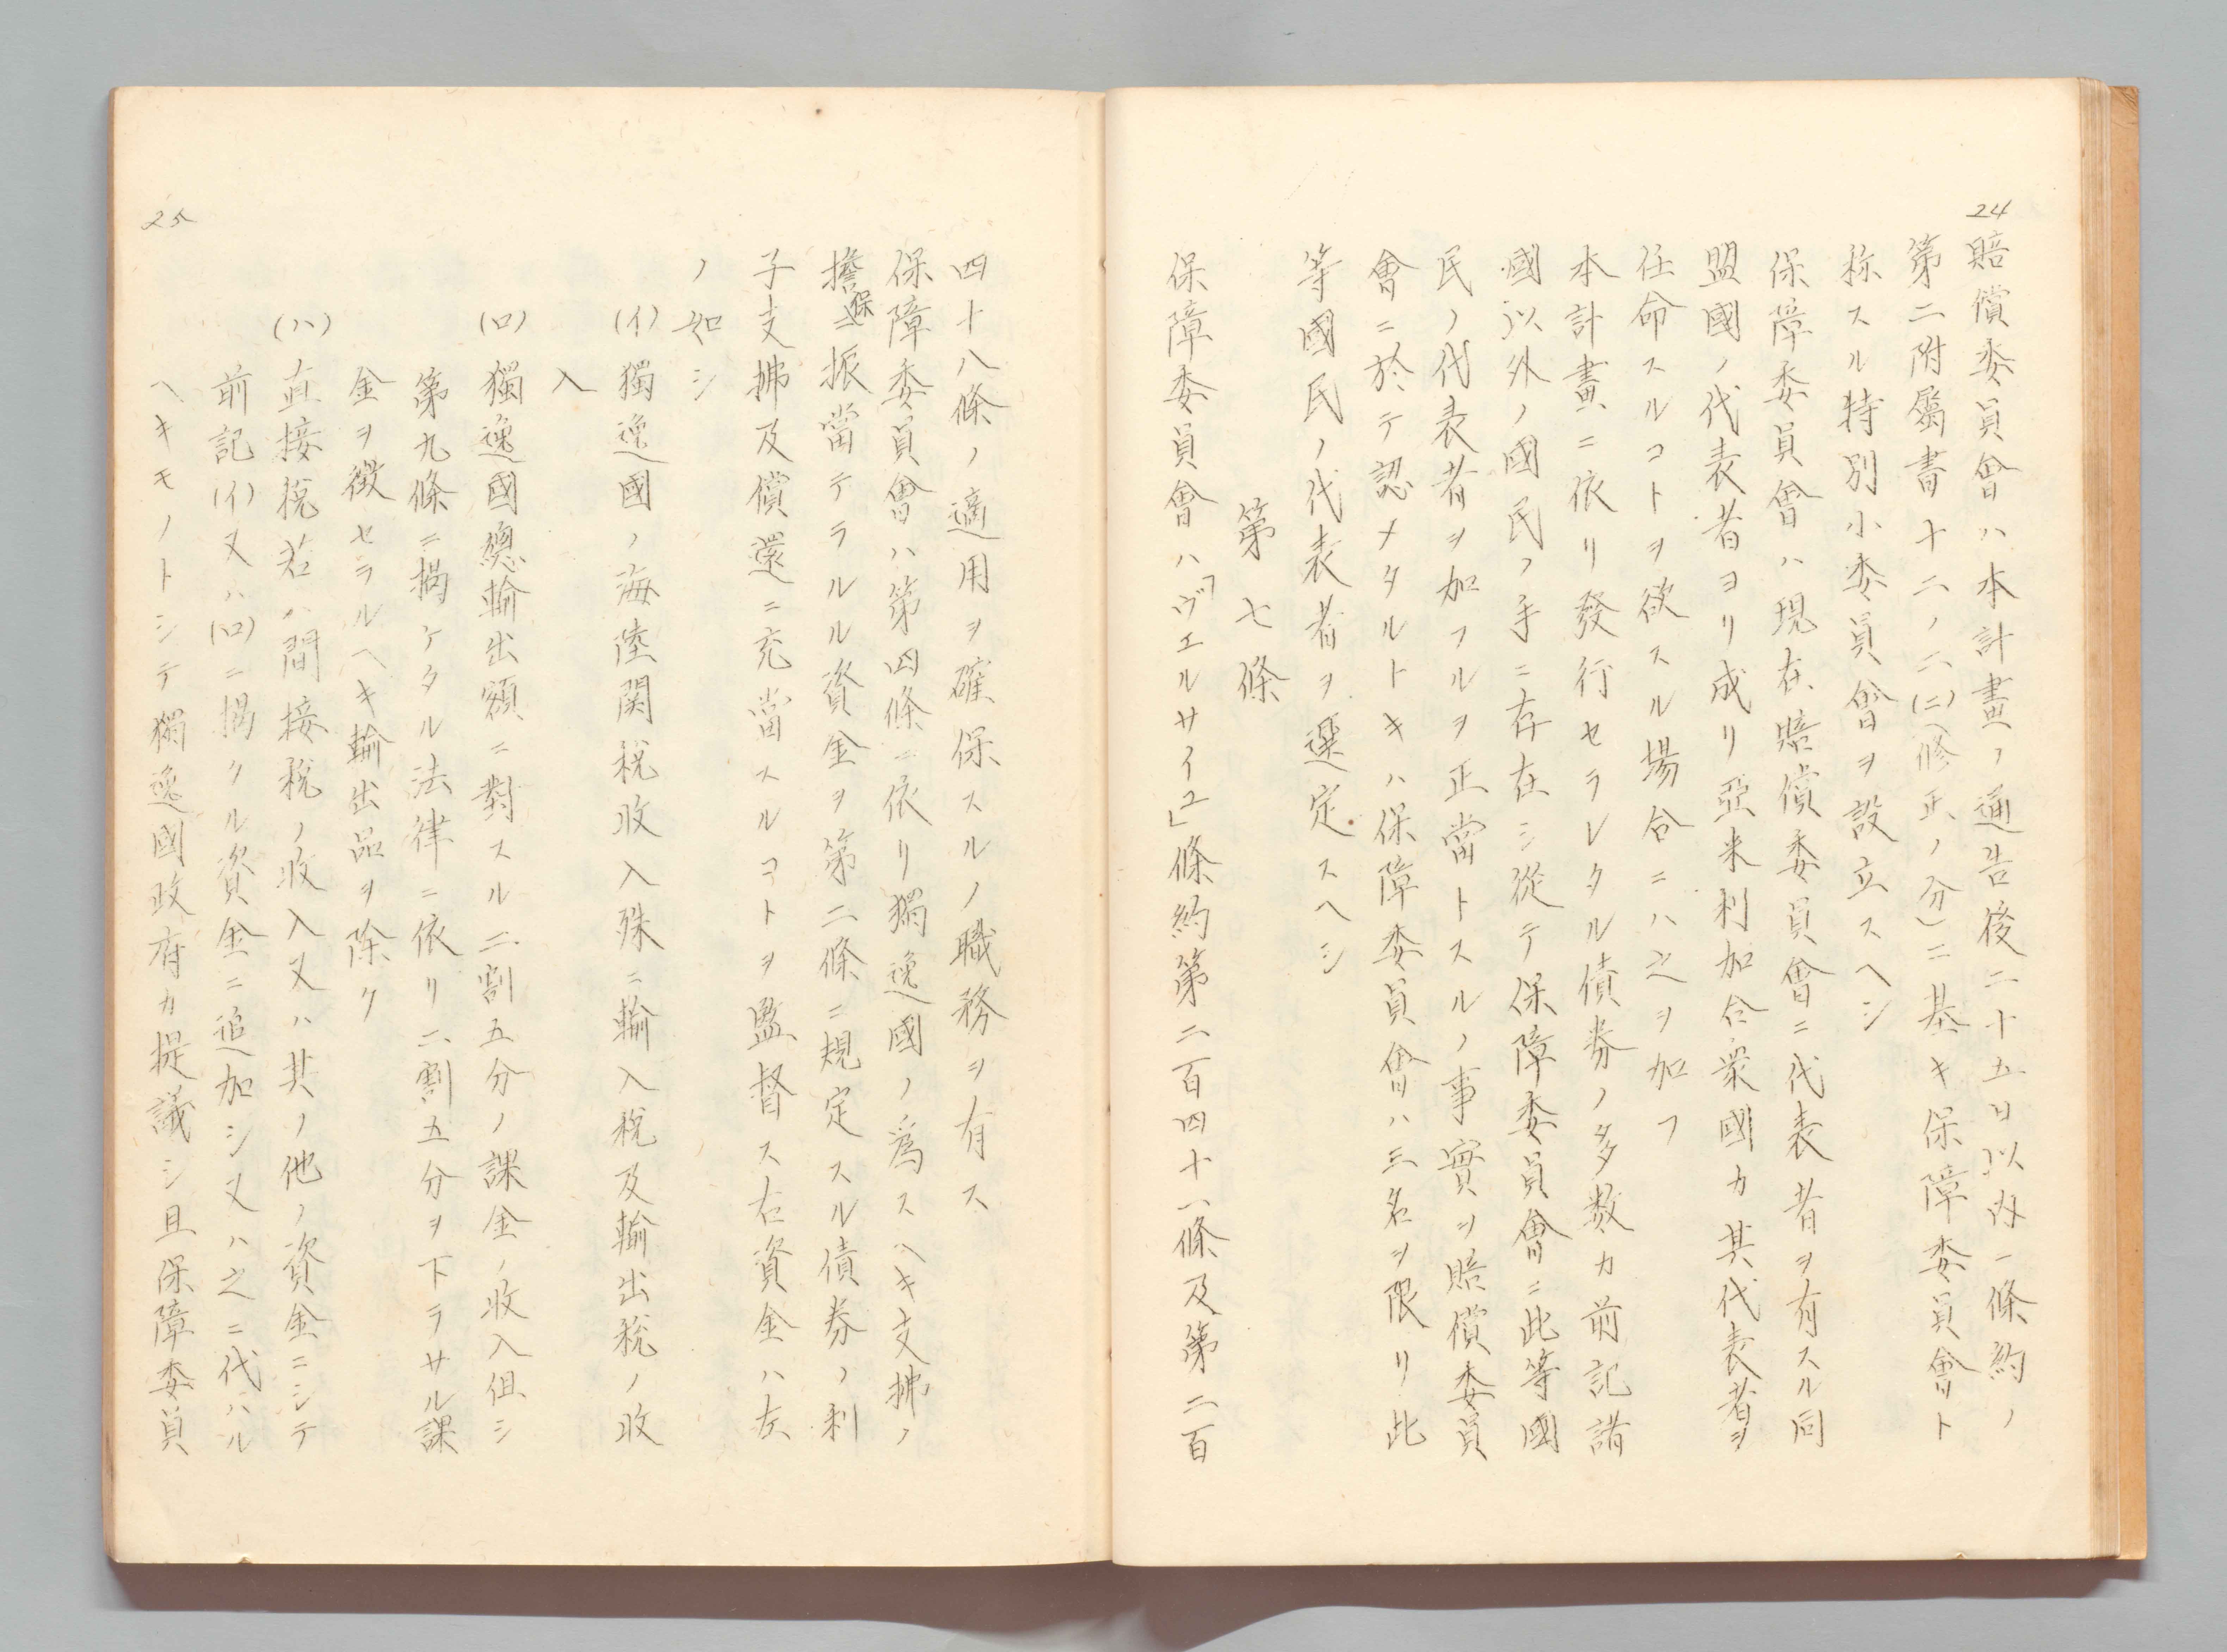 24
賠償委員會ハ本計畫ノ通告後二十五日以內ニ條約ノ
第二附屬書十二ノ二(ニ)(修正ノ分)ニ基キ保障委員會ト
称スル特別小委員會ヲ設立スヘシ
保障委員會ハ現在賠償委員會ニ代表者ヲ有スル同
盟國ノ代表者ヨリ成リ亞米利加合衆國カ其代表者ヲ
任命スルコトヲ欲スル場合ニハ之ヲ加フ
本計畫ニ依リ發行セラレタル債券ノ多数カ前記諸
國以外ノ國民ノ手ニ存在シ從テ保障委員會ニ此等國
民ノ代表者ヲ加フルヲ正當トスルノ事實ヲ賠償委員
會ニ於テ認メタルトキハ保障委員會ハ三名ヲ限リ此
等國民ノ代表者ヲ選定スヘシ
第七條
保障委員會ハ「ヴェルサイユ」條約第二百四十一條及第二百
四十八條ノ適用ヲ確保スルノ職務ヲ有ス
保障委員會ハ第四條ニ依リ獨逸國ノ爲スヘキ支拂ノ
擔保ニ振當テラルル資金ヲ第二條ニ規定スル債券ノ利
子支拂及償還ニ充當スルコトヲ監督ス右資金ハ左
ノ如シ
(イ)獨逸國ノ海陸関税收入殊ニ輸入税及輸出税ノ收
入
(ロ)獨逸國總輸出額ニ對スル二割五分ノ課金ノ收入但シ
第九條ニ揭ケタル法律ニ依リ二割五分ヲ下ラサル課
金ヲ徴セラルヘキ輸出品ヲ除ク
(ハ)直接税若ハ間接税ノ收入又ハ其ノ他ノ資金ニシテ
前記(イ)又ハ(ロ)ニ揭クル資金ニ追加シ又ハ之ニ代ハル
ヘキモノトシテ獨逸國政府カ提議シ且保障委員
25